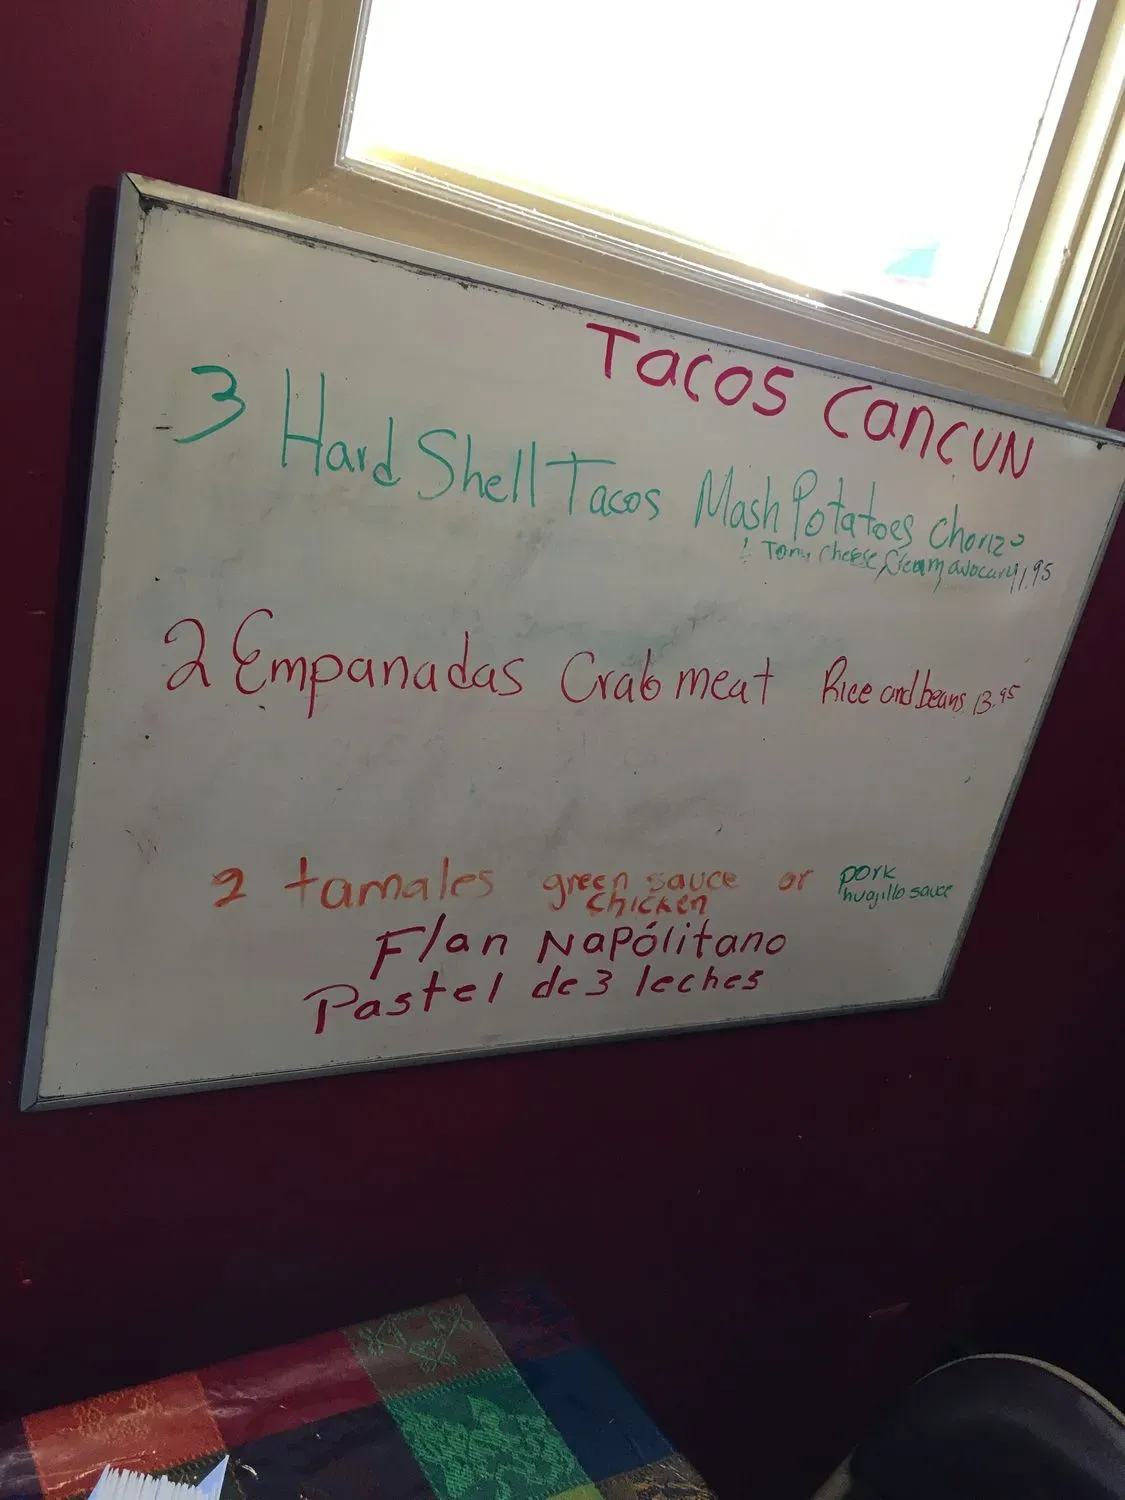 Tacos Cancun
3 Hard Shell Tacos Mash Potatoes Chorizo
Cheese, Cream
2 Empanadas Crab meat Rice and beans 13.95
2 tamales green sauce or pork
chicken huajillo sauce
Flan Napólitano
Pastel de 3 leches